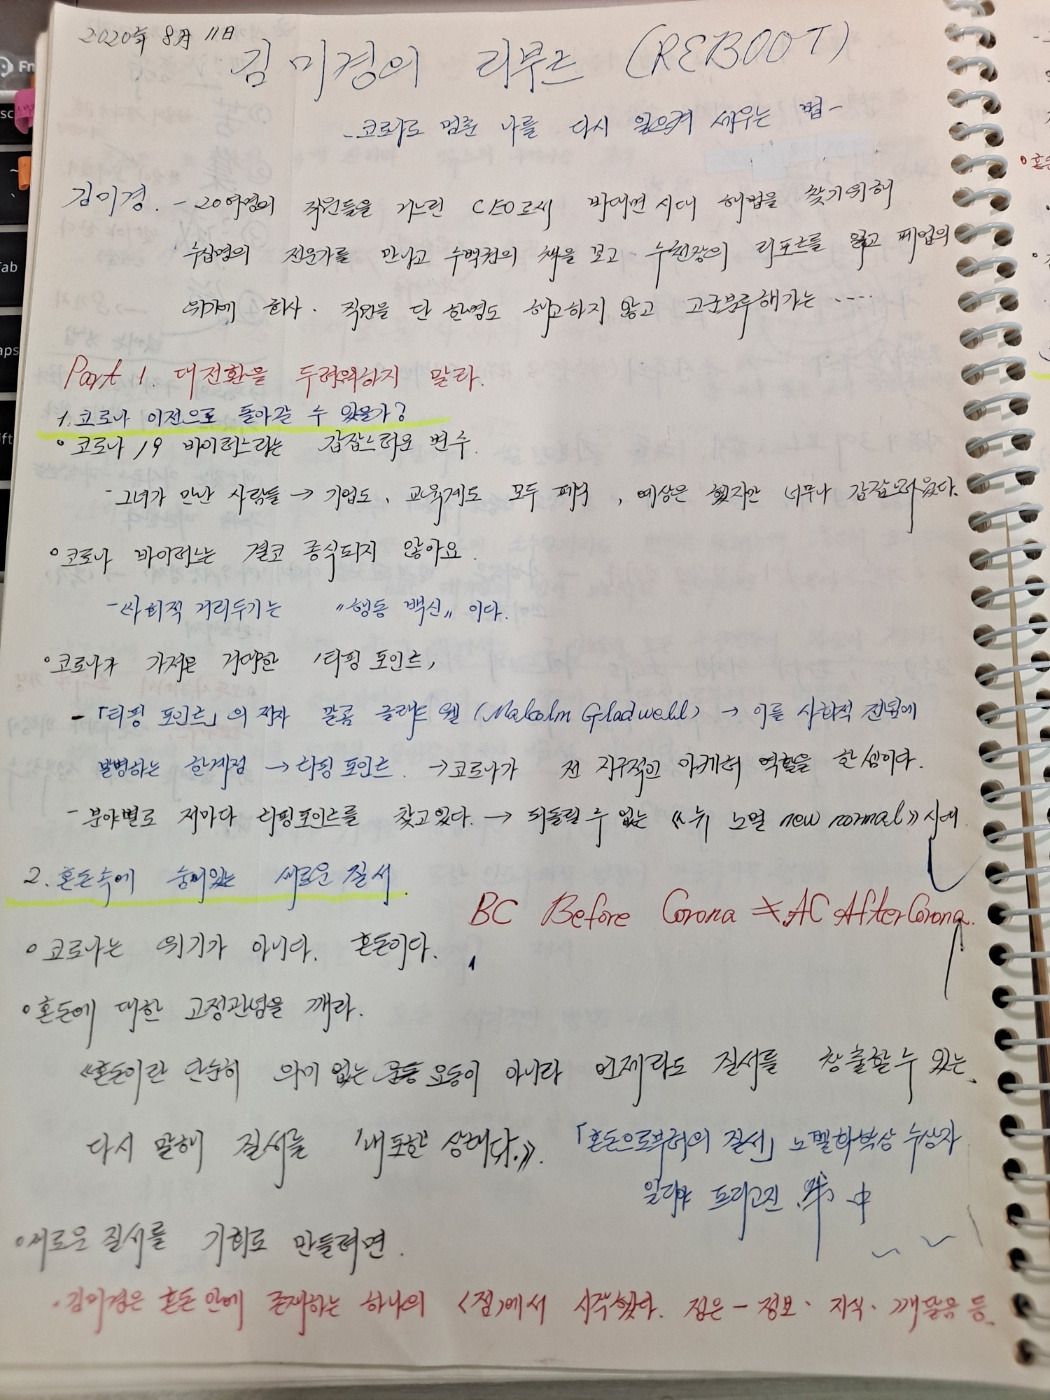 2020年 8月 11日
김미경의 리부트 (REBOOT)
-코로나로 멈춘 나를 다시 일으켜 세우는 법-
김미경. - 20여명의 직원들을 거느린 CEO로써 비대면시대 해법을 찾기위해
수십명의 전문가를 만나고 수백권의 책을 보고 수천장의 리포트를 읽고 폐업의
위기에 회사. 직원을 단 한명도 해고하지 않고 고군분투해가는 ····
Part 1. 대전환을 두려워하지 말라.
1. 코로나 이전으로 돌아갈 수 있을가?
코로나 19 바이러스라는 갑잡스러운 변수.
- 그녀가 만난 사람들 → 기업도, 교육계도 모두 폐허, 예상은 했지만 너무나 갑잡스러웠다.
코로나 바이러스는 결코 종식되지 않아요.
- 사회적 거리두기는 《행동 백신》 이다.
코로나가 가져온 거대한 '티핑 포인트'
-「티핑 포인트」의 작자 말콤 글래드웰 (Malcolm Gladwell) → 이를 사회적 전염에
발병하는 한계점 → 티핑 포인트. → 코로나가 전 지구적인 역할을 한 셈이다.
- 분야별로 저마다 티핑포인트를 찾고있다. → 되돌릴 수 없는 《뉴 노멀 new normal》 시대
2. 혼돈속에 숨어있는 새로운 질서.
BC Before Corona ≠ AC After Corona.
코로나는 위기가 아니다. 혼돈이다.
혼돈에 대한 고정관념을 깨라.
《혼돈이란 단순히 의미 없는 요동이 아니라 언제라도 질서를 창출할 수 있는.
다시 말해 질서를 '내포한 상태다.》
「혼돈으로부터의 질서」 노벨화학상 수상자
일리야 프리고진 中
새로운 질서를 기회로 만들려면.
·김미경은 혼돈 안에 존재하는 하나의 <점>에서 시작했다. 점은 - 정보· 지식· 깨달음 등.